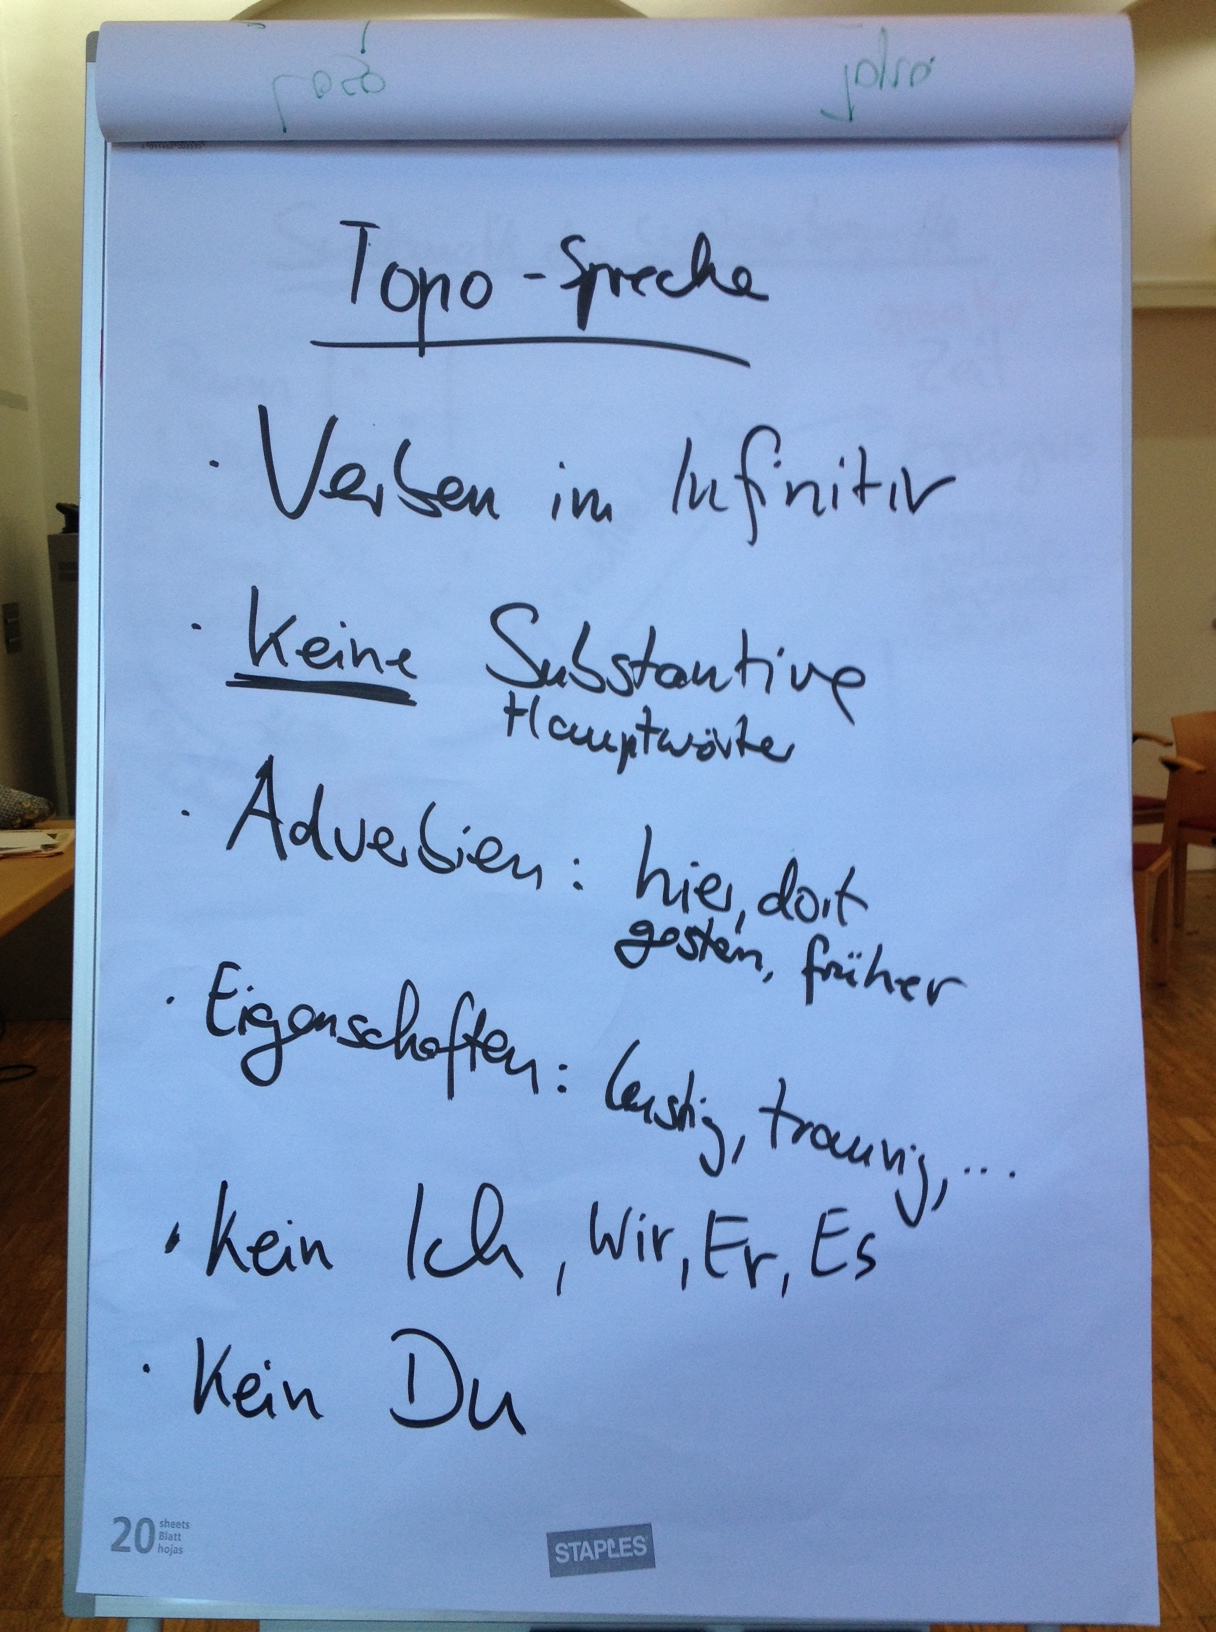 Topo-Sprache
· Verben im Infinitiv
· Keine Substantive
Hauptwörter
· Adverbien: hier, dort
gestern, früher
· Eigenschaften: lustig, traurig, ...
· Kein Ich, Wir, Er, Es
· Kein Du
20 sheets
Blatt
hojas
STAPLES